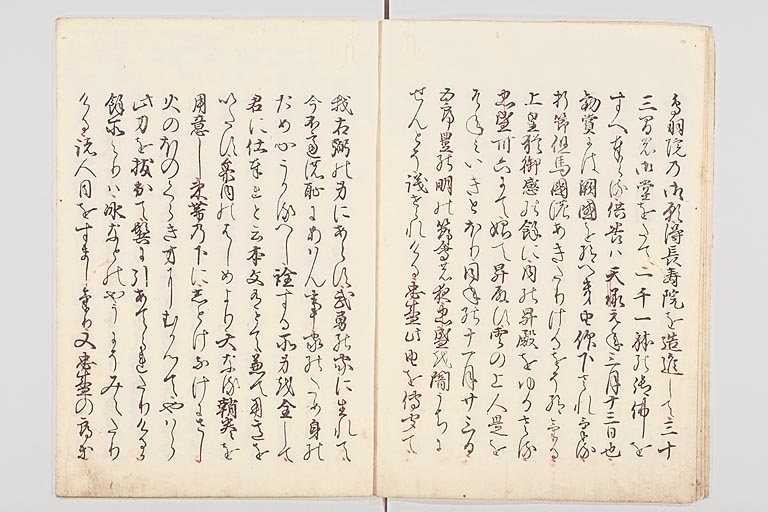 鳥羽院乃御願得長寿院を造進して三十
三間の御堂をたて一千一躰の御佛を
すへ奉らる供養ハ天承元年三月十三日也
勧賞には闕国を給ふへき由仰下されける
折節但馬國のあきたりけるをそ給ける
上皇猶御感の餘に内の昇殿をゆるさる
忠盛卅六にて始て昇殿す雲の上人是を
そねミいきとおり同年の十一月廿三日
五節豊の明の節會の夜忠盛を闇うちに
せんとそ議せられける忠盛此由を傳聞て
我右筆の身にあらす武勇の家に生れて
今不慮の恥にあはん事家のため身の
ため心うかるへし詮する所身を全して
君に仕奉れと云本文有とて兼て用意を
いたす参内のはしめより大なる鞘巻を
用意し束帯の下にしとけなけにさし
火のほのくらき方にむかつてやハら
此刀を抜出て鬢に引あてられたりけるか
餘所よりハ氷なとのやうにそみえたり
ける諸人目をすましけり又忠盛の郎等